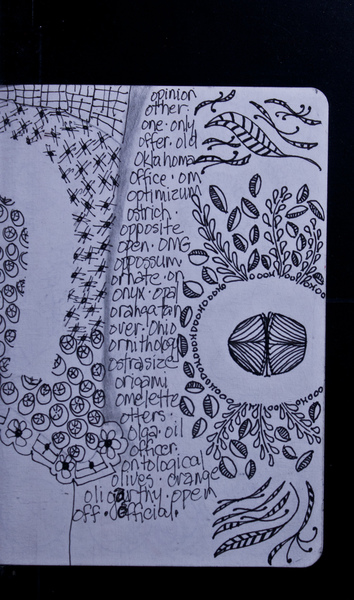 opinion
other.
one. only
offer. old
Oklahoma
office. om
optimizum
ostrich.
opposite
open. OMG
oppossum.
ornate. on
onyx. opal
orahgatan
over. Ohio
ornitholog
ostrasize
origami
omelette
otters.
olga. oil
officer.
ontological
olives. orange
oligarthy. open
off. official.